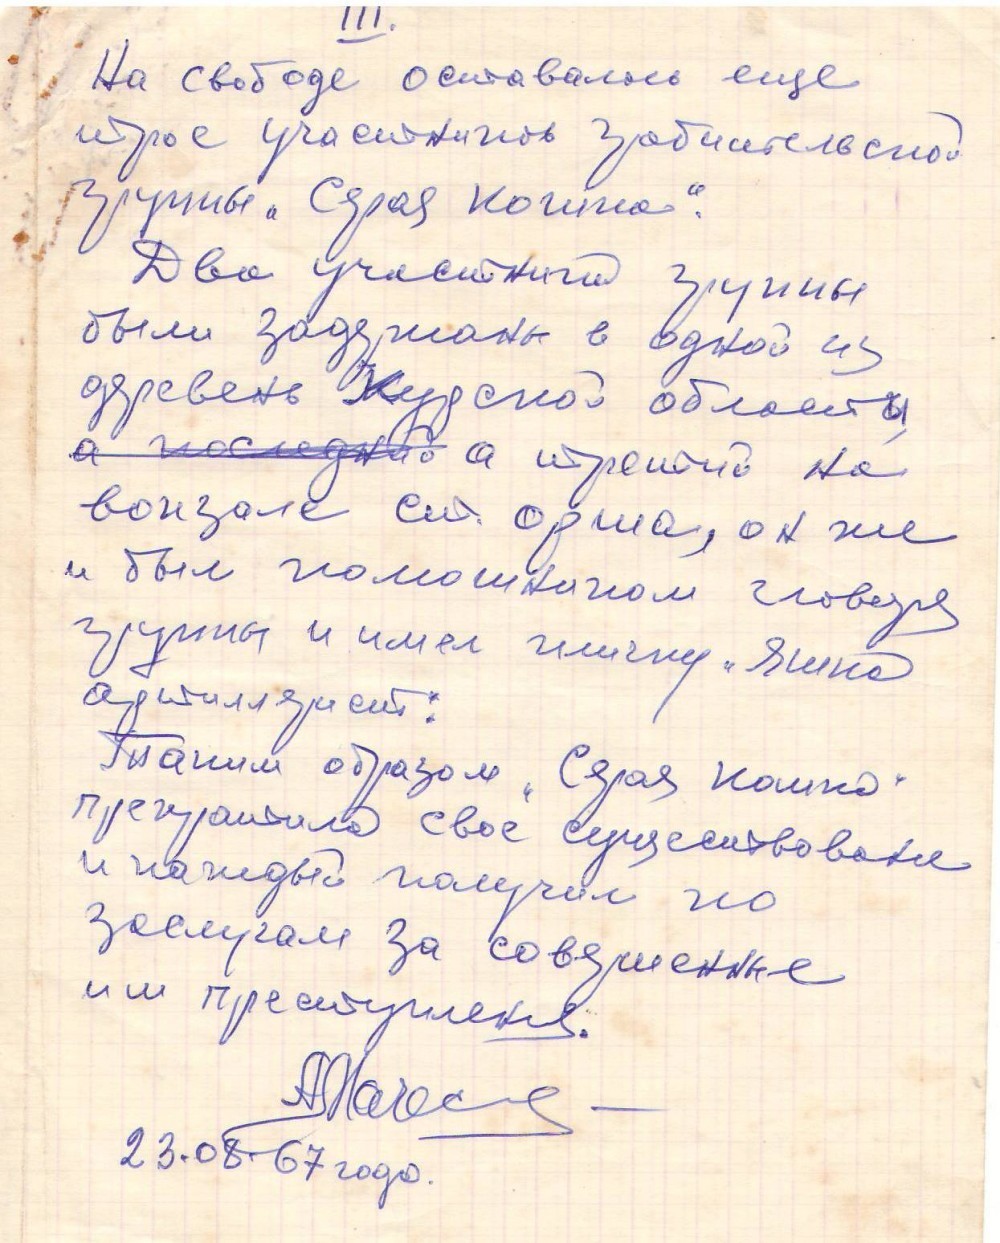 III.
На свободе оставалось еще
трое участников грабительской
группы „Серая кошка“.
Два участника группы
были задержаны в одной из
деревень Курской области,
а последний а третий на
вокзале ст. Орша, он же
и был помошником главаря
группы и имел кличку „Яшка
артиллерист“.
Таким образом „Серая кошка“
прекратила свое существование
и каждый получил по
заслугам за совершенные
им преступления.
23.08.67 года.